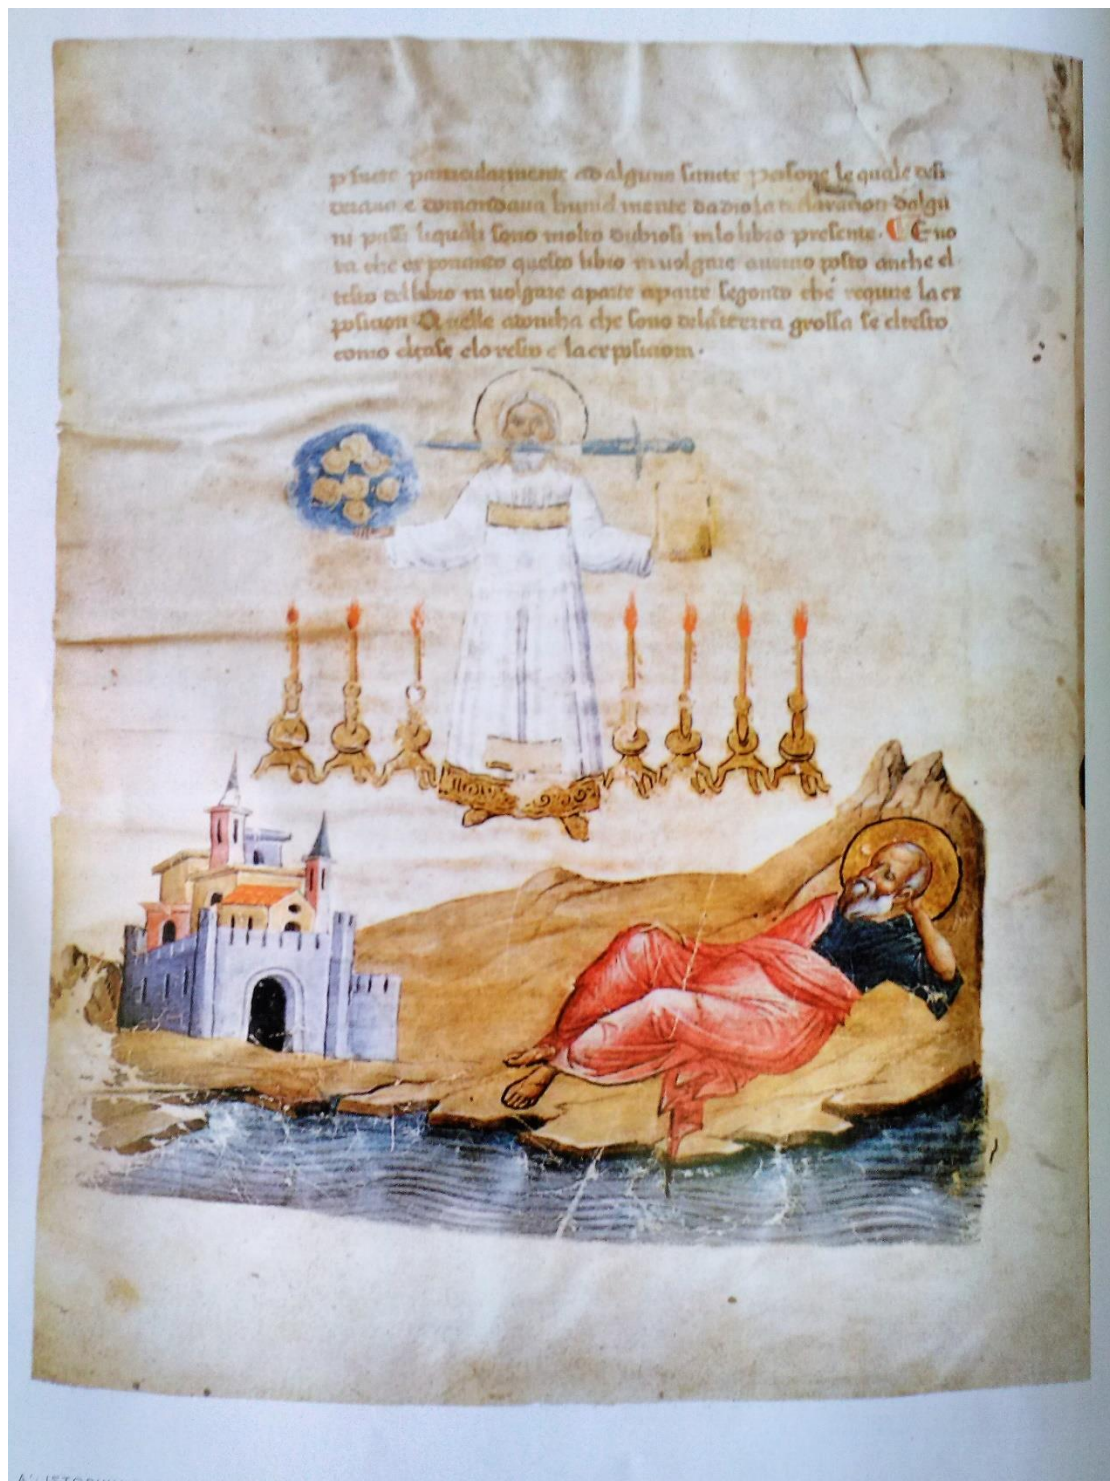 particularmente ad alguna sancte persone le quale desi
derava e domandava humelmente da dio la declaracion dalgu
ni passi liquali sono molto dubiosi in lo libro presente. E no
ta che exponando questo libro in volgare avemo posto anche el
testo del libro in volgare aparte aparte segondo che require la ex
posicion Quelle che sono de letera grossa se el testo
como e lo resto e la exposiciom.